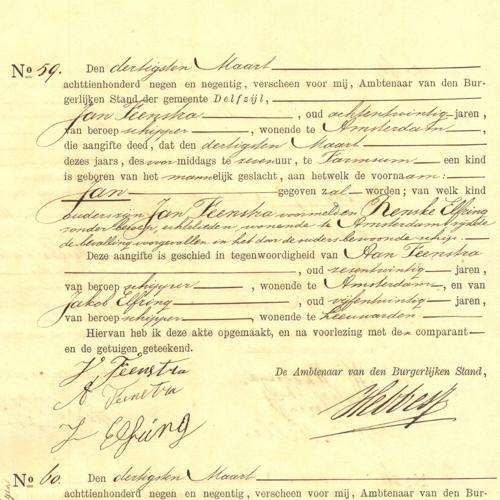 No 59. Den dertigsten Maart
achttienhonderd negen en negentig, verscheen voor mij, Ambtenaar van den Bur-
gerlijken Stand der gemeente Delfzijl,
Jan Feenstra, oud achtentwintig jaren,
van beroep schipper, wonende te Amsterdam,
die aangifte deed, dat den dertigsten Maart
dezes jaars, des voor middags te zeven uur, te Farmsum een kind
is geboren van het mannelijk geslacht, aan hetwelk de voornaam:
Jan gegeven zal worden; van welk kind
ouders zijn Jan Feenstra voormeld en Renske Elfring
zonder beroep, echtelieden, wonende te Amsterdam, zijnde
de bevalling voorgevallen in het door de ouders bewoonde schip.
Deze aangifte is geschied in tegenwoordigheid van Aan Feenstra
, oud zesentwintig jaren,
van beroep schipper, wonende te Amsterdam, en van
Jakob Elfring, oud vijfentwintig jaren,
van beroep schipper, wonende te Leeuwarden.
Hiervan heb ik deze akte opgemaakt, en na voorlezing met den comparant
en de getuigen geteekend.
J Feenstra
De Ambtenaar van den Burgerlijken Stand,
A Feenstra
J Elfring
No 60. Den dertigsten Maart
achttienhonderd negen en negentig, verscheen voor mij, Ambtenaar van den Bur-